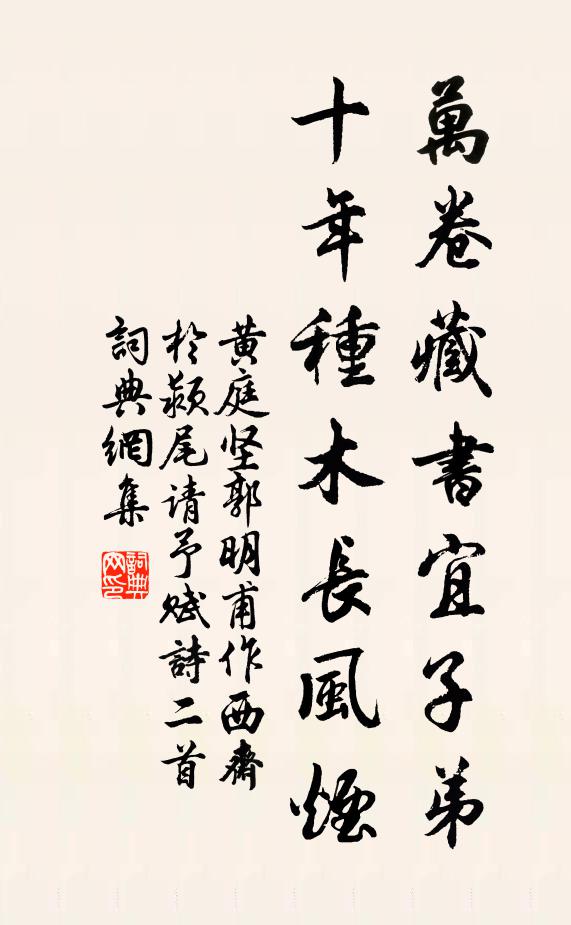 萬卷藏書宜子弟
十年種木長風煙
黄庭坚郭明甫作西齋
於潁尾请予赋詩二首
詞典網集
詞典
网印